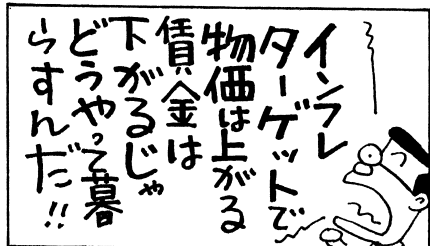 インフレ
ターゲットで
物価は上がる
賃金は
下がるじゃ
どうやって暮
らすんだ!!